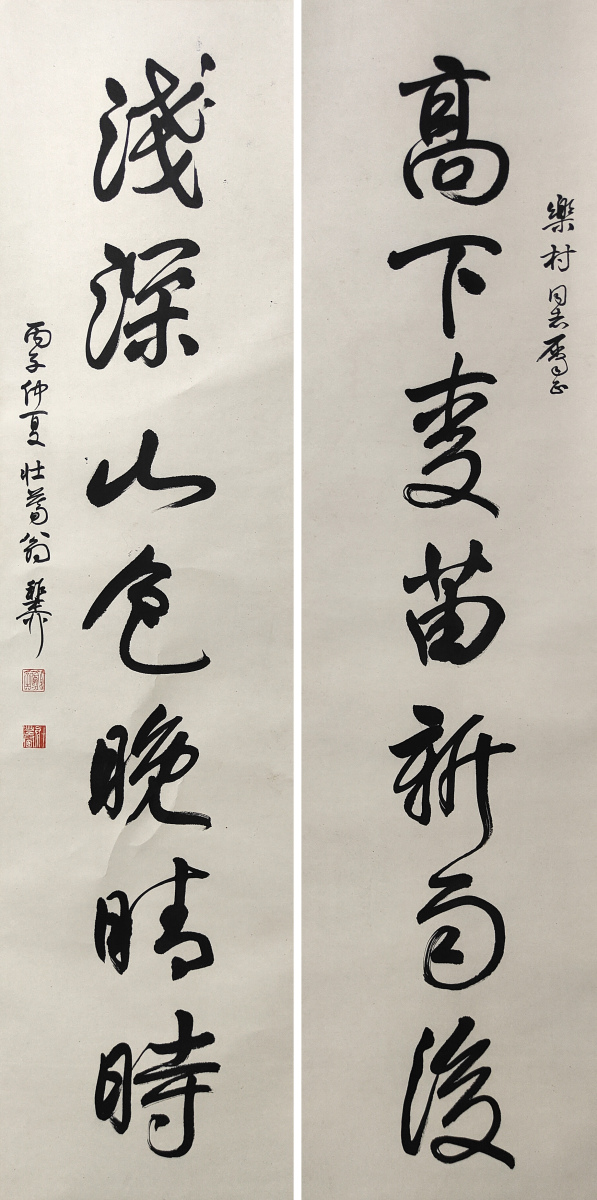 樂村同志屬正
高下麥苗新雨後
淺深山色晚晴時
丙子仲夏壮暮翁稚